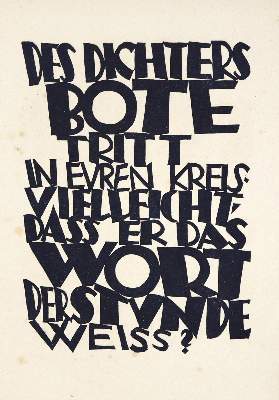 DES DICHTERS
BOTE
TRITT
IN EVREN KREIS·
VIELLEICHT,
DASS ER DAS
WORT
DER STVNDE
WEISS?